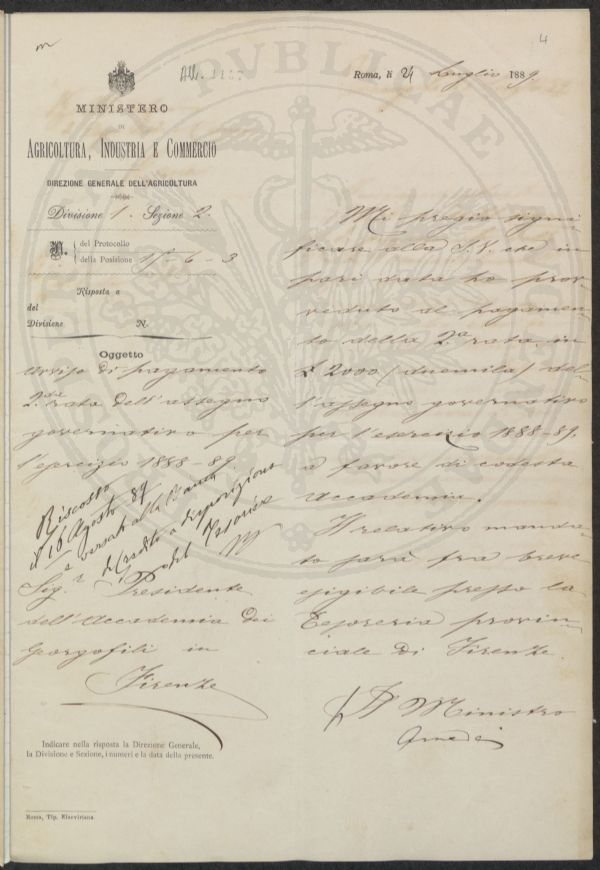 4
All. 1187
Roma, li 24 Luglio 1889.
MINISTERO
DI
AGRICOLTURA, INDUSTRIA E COMMERCIO
DIREZIONE GENERALE DELL'AGRICOLTURA
Divisione 1. Sezione 2.
N. del Protocollo
della Posizione 15-6-3
Risposta a
del
Divisione N.
Oggetto
Avviso di pagamento
2.da rata dell'assegno
governativo per
l'esercizio 1888-89.
Riscosso
il 16 Agosto 89
e versato alla Banca
di Credito a disposizione
del Tesoriere
Sig.r Presidente
dell'Accademia dei
Georgofili in
Firenze
Indicare nella risposta la Direzione Generale,
la Divisione e Sezione, i numeri e la data della presente.
Roma, Tip. Elzeviriana
Mi pregio signi-
ficare alla S.V. che in
pari data ho prov-
veduto al pagamen-
to della 2a rata in
£ 2000 (duemila) del-
l'assegno governativo
per l'esercizio 1888-89.
a favore di codesta
Accademia.
Il relativo manda-
to sarà fra breve
esigibile presso la
Tesoreria provin-
ciale di Firenze.
Pl Ministro
PUBLICAE